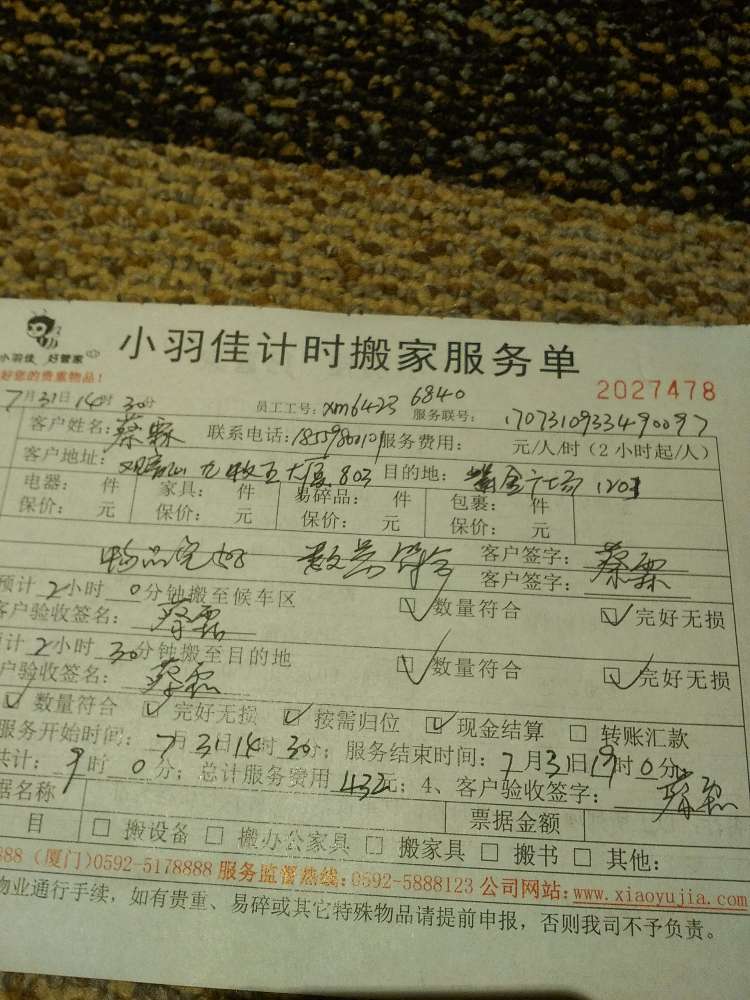 小羽佳 好管家
好您的贵重物品！
小羽佳计时搬家服务单
2027478
7月31日14时30分 员工工号：xm6423 6840 服务联号：1707310933490097
客户姓名：蔡霖 联系电话：服务费用： 元/人/时（2小时起/人）
客户地址：九牧王大厦803 目的地：
电器： 件 家具： 件 易碎品： 件 包裹： 件
保价： 元 保价： 元 保价： 元 保价： 元
物品完好 数量符合 客户签字：蔡霖
客户签字：
预计2小时0分钟搬至候车区 数量符合 完好无损
客户验收签名：蔡霖
计2小时30分钟搬至目的地 数量符合 完好无损
户验收签名：蔡霖
数量符合 完好无损 按需归位 现金结算 转账汇款
服务开始时间：7月31日14时30分；服务结束时间：7月31日19时0分
共计：9时0分；总计服务费用432元；4、客户验收签字：蔡霖
据名称 票据金额
目 搬设备 搬办公家具 搬家具 搬书 其他：
888（厦门）0592-5178888 服务监督热线：0592-5888123 公司网站：www.xiaoyujia.com
物业通行手续，如有贵重、易碎或其它特殊物品请提前申报，否则我司不予负责。